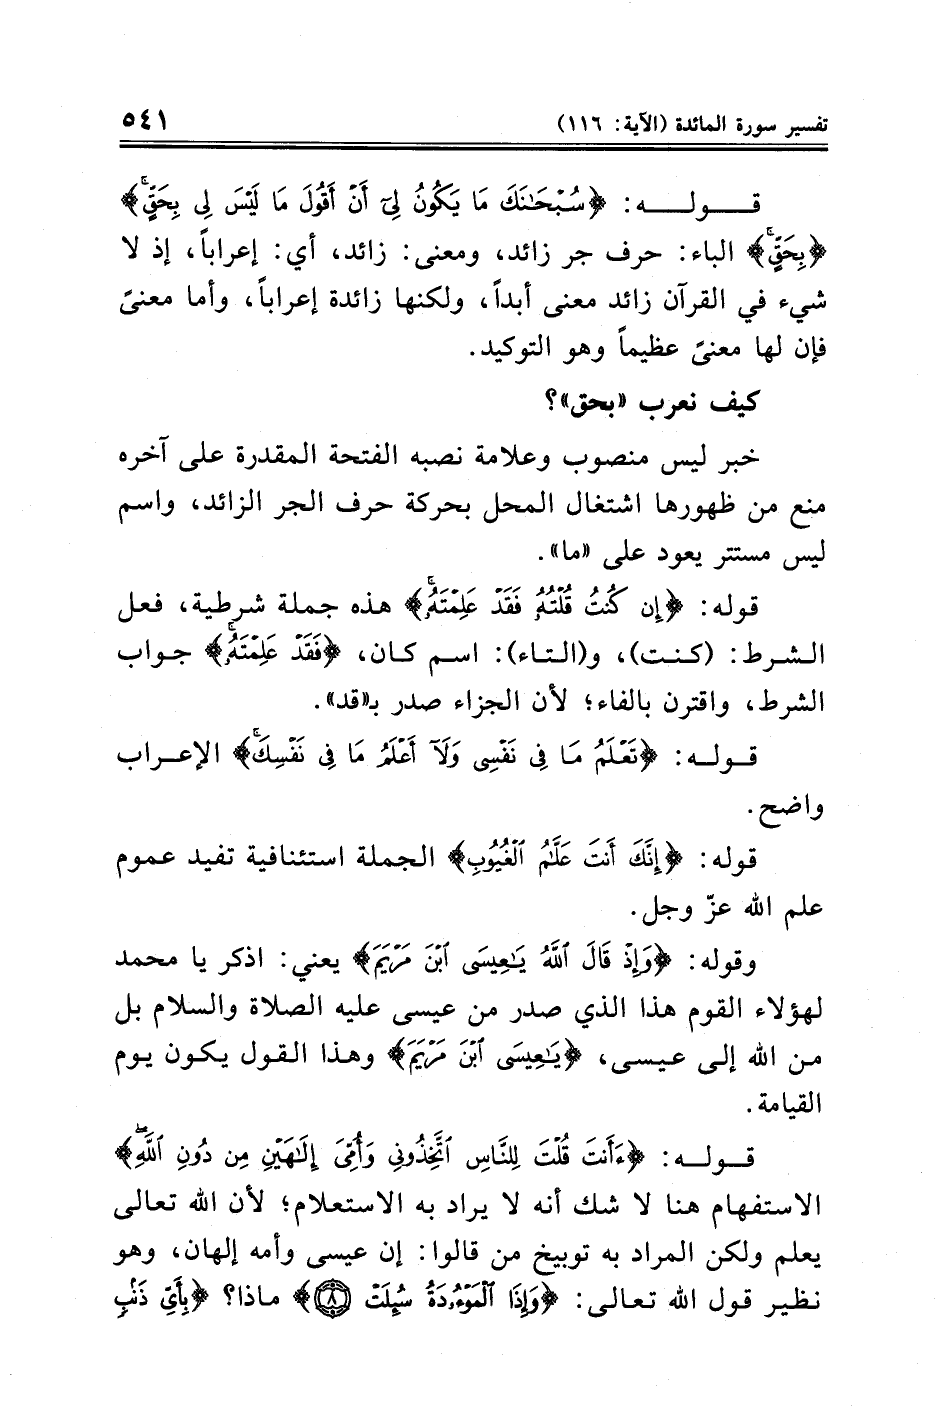 تفسير سورة المائدة (الآية: ١١٦) ٥٤١
قوله: ﴿سُبْحَٰنَكَ مَا يَكُونُ لِىٓ أَنْ أَقُولَ مَا لَيْسَ لِى بِحَقٍّ ۚ﴾
﴿بِحَقٍّ ۚ﴾ الباء: حرف جر زائد، ومعنى: زائد، أي: إعراباً، إذ لا
شيء في القرآن زائد معنى أبداً، ولكنها زائدة إعراباً، وأما معنىً
فإن لها معنىً عظيماً وهو التوكيد.
كيف نعرب «بحق»؟
خبر ليس منصوب وعلامة نصبه الفتحة المقدرة على آخره
منع من ظهورها اشتغال المحل بحركة حرف الجر الزائد، واسم
ليس مستتر يعود على «ما».
قوله: ﴿إِن كُنتُ قُلْتُهُۥ فَقَدْ عَلِمْتَهُۥ ۚ﴾ هذه جملة شرطية، فعل
الشرط: (كنت)، و(التاء): اسم كان، ﴿فَقَدْ عَلِمْتَهُۥ ۚ﴾ جواب
الشرط، واقترن بالفاء؛ لأن الجزاء صدر بـ«قد».
قوله: ﴿تَعْلَمُ مَا فِى نَفْسِى وَلَآ أَعْلَمُ مَا فِى نَفْسِكَ ۚ﴾ الإعراب
واضح.
قوله: ﴿إِنَّكَ أَنتَ عَلَّٰمُ ٱلْغُيُوبِ﴾ الجملة استئنافية تفيد عموم
علم الله عزّ وجل.
وقوله: ﴿وَإِذْ قَالَ ٱللَّهُ يَٰعِيسَى ٱبْنَ مَرْيَمَ﴾ يعني: اذكر يا محمد
لهؤلاء القوم هذا الذي صدر من عيسى عليه الصلاة والسلام بل
من الله إلى عيسى، ﴿يَٰعِيسَى ٱبْنَ مَرْيَمَ﴾ وهذا القول يكون يوم
القيامة.
قوله: ﴿ءَأَنتَ قُلْتَ لِلنَّاسِ ٱتَّخِذُونِى وَأُمِّىَ إِلَٰهَيْنِ مِن دُونِ ٱللَّهِ ۖ﴾
الاستفهام هنا لا شك أنه لا يراد به الاستعلام؛ لأن الله تعالى
يعلم ولكن المراد به توبيخ من قالوا: إن عيسى وأمه إلهان، وهو
نظير قول الله تعالى: ﴿وَإِذَا ٱلْمَوْءُۥدَةُ سُئِلَتْ ٨﴾ ماذا؟ ﴿بِأَىِّ ذَنۢبٍ